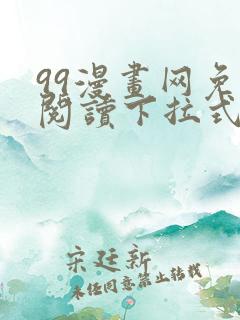 99漫畫网免
閱讀下拉式
宋廷新
未经同意禁止转载